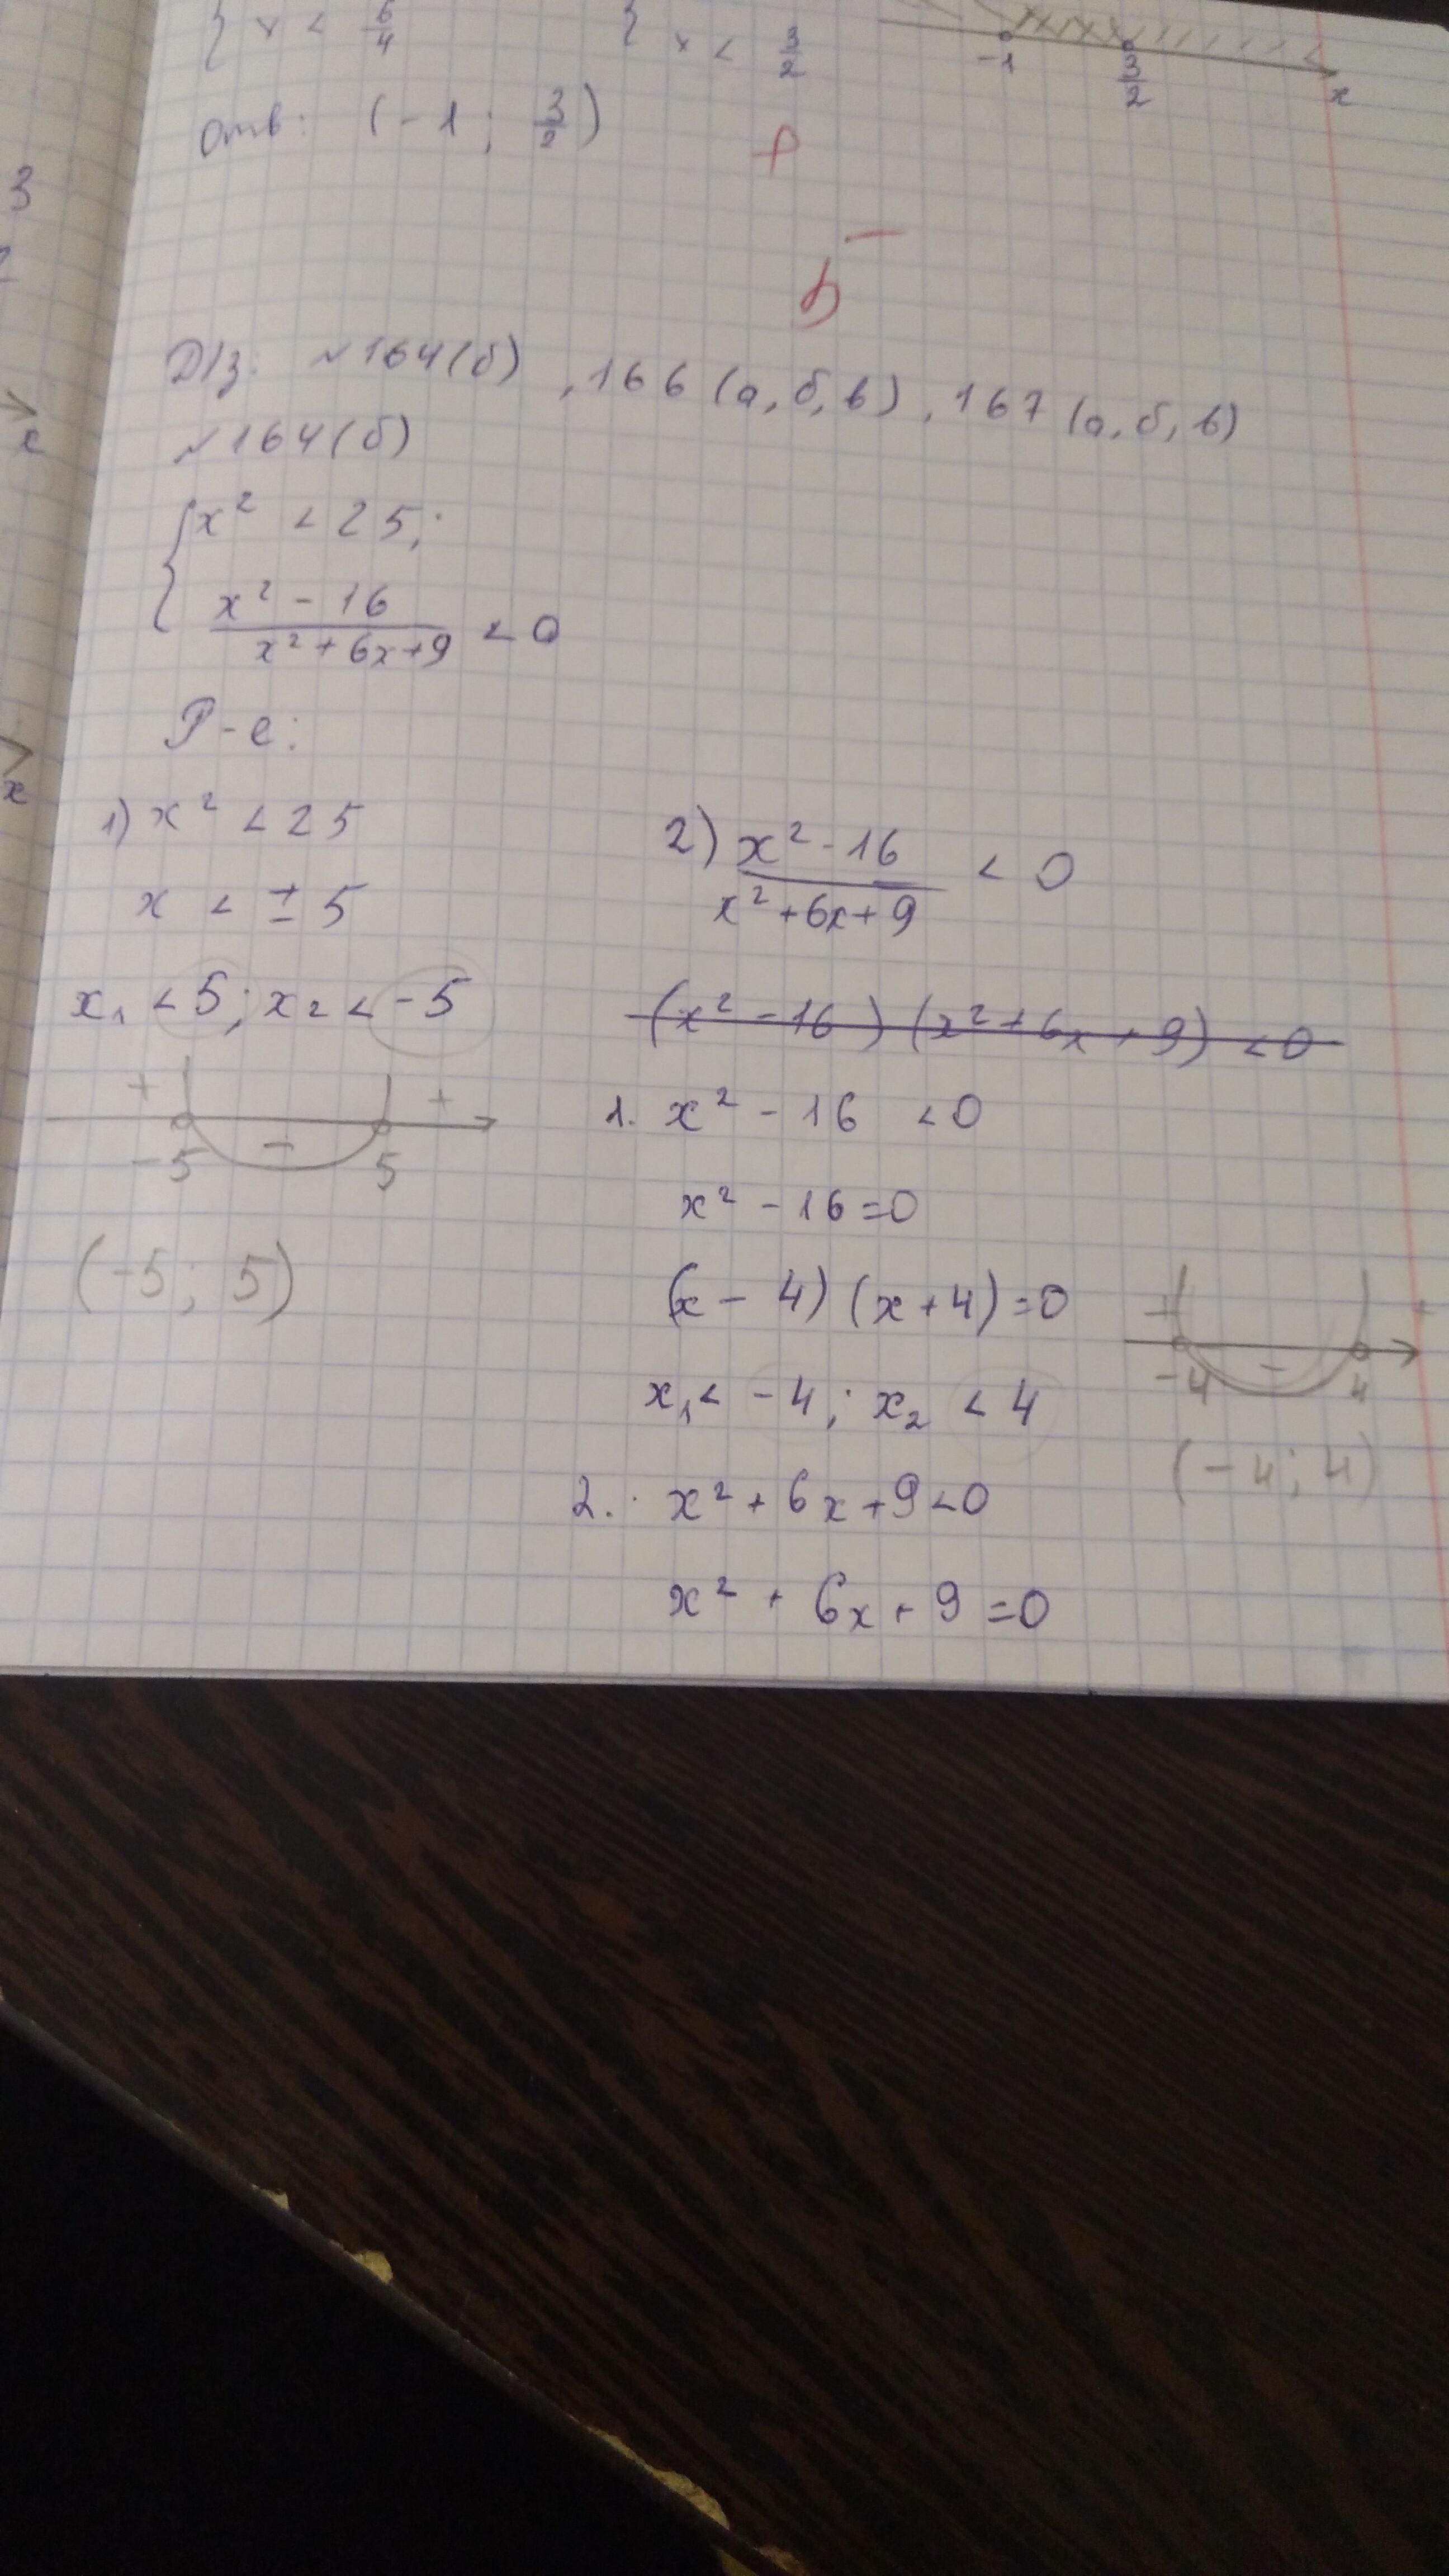 { x < 6/4 { x < 3/2 -1 3/2 x
Отв: (-1; 3/2)
3
x
Д/з: №164(б), 166(а,б,в), 167(а,б,в)
№164(б)
{ x² < 25;
(x² - 16)/(x² + 6x + 9) < 0
Р-е:
x
1) x² < 25
x < ± 5
x₁ < 5; x₂ < -5
+ - +
-5 5
(-5; 5)
2) (x² - 16)/(x² + 6x + 9) < 0
(x² - 16)(x² + 6x + 9) < 0
1. x² - 16 < 0
x² - 16 = 0
(x - 4)(x + 4) = 0
x₁ < -4; x₂ < 4
+ - +
-4 4
(-4; 4)
2. x² + 6x + 9 < 0
x² + 6x + 9 = 0